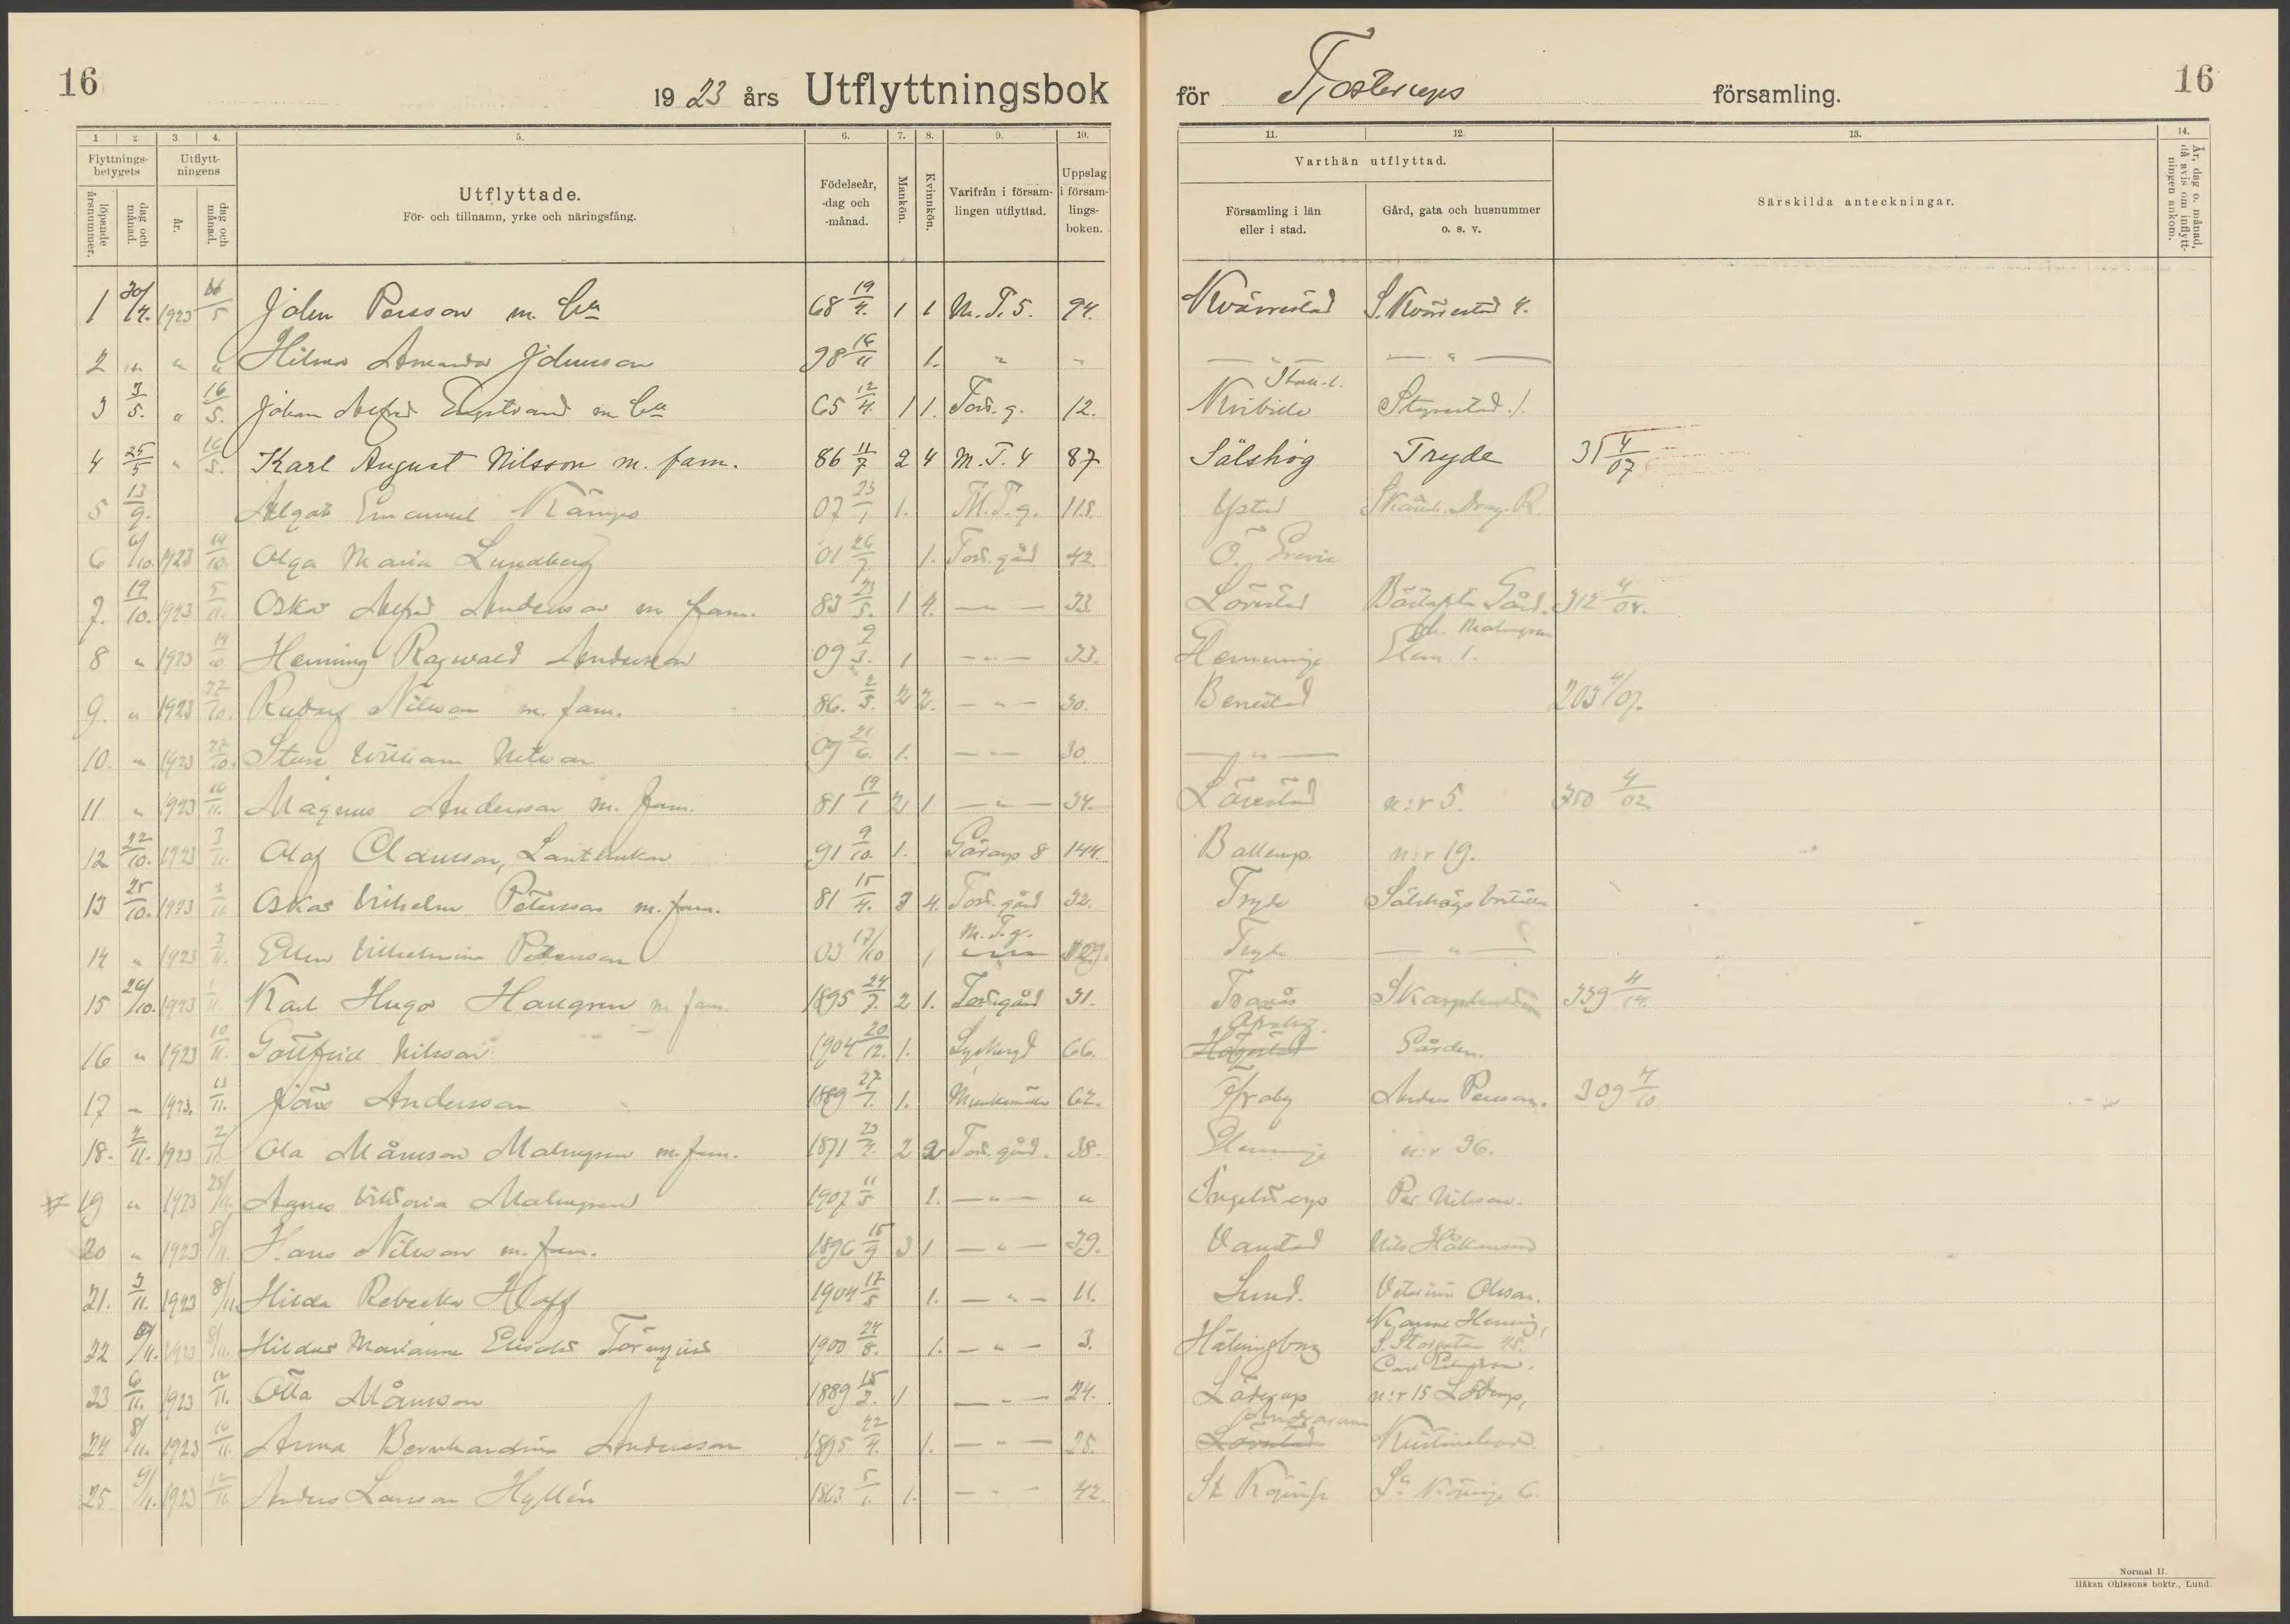 16
1923 års Utflyttningsbok
för Tosterups församling.
16
1 2. 3. 4. 5. 6. 7. 8. 9. 10. 11. 12. 13. 14.
Flyttnings-betygets
löpande årsnummer.
dag och månad.
Utflytt-ningens
år.
dag och månad.
Utflyttade.
För- och tillnamn, yrke och näringsfång.
Födelseår, -dag och -månad.
Mankön.
Kvinnkön.
Varifrån i försam-lingen utflyttad.
Uppslag i försam-lings-boken.
Varthän utflyttad.
Församling i län eller i stad.
Gård, gata och husnummer o. s. v.
Särskilda anteckningar.
År, dag o. månad, då avis om inflytt-ningen ankom.
1 1923 John Persson m. 68 19/4. 1 1 M. T. 5. 94. Kvärrestad S. Kvärrestad 4.
2 " " Hilma Amanda Johnsson 98 1. " " — " — — " —
3 3/5. " 16/5. Johan Alfred Engstrand m 65 12/4. 1 1. Tost. g. 12. Kvibille 1.
4 25/5 " 16/5. Karl August Nilsson m. fam. 86 11/7 2 4 M. T. 4 87 Sälshög Tryde 31 4/07
5 13/9. Algot Emanuel Kämpe 07 23/1 1. M. T. 9. 118. Ystad Skånk. Drag. R.
6 6/10. 1923 19/10. Olga Maria Lundberg 01 26/7. 1. Tost. gård 42. Ö. Grevie
7. 19/10. 1923 5/11. Oskar Alfred Andersson m fam. 83 23/5. 1 4. — " — 33 Lövestad Gård. 312 4/08.
8 " 1923 Henning Ragnvald Andersson 09 2/3. 1 — " — 33. Glemminge Malmgren 1.
9. " 1923 22/10. Rudolf Nilsson m. fam. 86. 2/5. 2 2. — " — 30. Benestad 203 4/07.
10. " 1923 22/10. Sture William Nilsson 09 21/6. 1. — " — 30. — " —
11 " 1923 Magnus Andersson m. fam. 81 19/1 2 1 — " — 34. Lövestad n:r 5. 350 4/02
12 22/10. 1923 3/11. Olof Clausson, Lantbrukar 91 9/10. 1. Gärarp 8 144. Bollerup n:r 19.
13 25/10. 1923 3/11. Oskar Vilhelm Petersson m. fam. 81 15/4. 3 4. Tost. gård 32. Tryde Sälshögs
14 " 1923 3/11. Ellen Vilhelmina Petersson 03 17/10 1 M. T. 9. Tryde — " —
15 26/10. 1923 1/11. Karl Hugo Haugren m. fam. 1895 24/7. 2 1. Tost. gård 31. Tranås 339 4/14.
16 " 1923 10/11. Gottfrid Nilsson 1904 20/12. 1. 66. Högestad Gården.
17 " 1923. 13/11. Jöns Andersson 1889 27/1. 1. 62. Fraby Anders Persson. 309 4/10
18. 2/11. 1923 2/11 Ola Månsson Malmgren m. fam. 1871 23/4. 2 2 Tost. gård. 38. Glemminge n:r 36.
19 " 1923 28/11. Agnes Viktoria Malmgren 1907 11/5 1. — " — " Ingelstorp Per Nilsson.
20 " 1923 8/11. Hans Nilsson m. fam. 1896 15/9 3 1 — " — 39. Vanstad Nils Håkansson
21. 3/11. 1923 8/11 Hilda Rebecka Hoff 1904 17/5 1. — " — 11. Lund. Olsson.
22 1923 8/11. Hildur Marianne Elisabet Törnqvist 1900 24/8. 1. — " — 3. Hälsingborg S. Storgatan 45.
23 6/11. 1923 12/11. Otto Månsson 1889 15/2. 1 — " — 24. Löderup n:r 15 Löderup,
24 8/11. 1923 16/11. Anna Bernhardina Andersson 1895 22/4. 1. — " — 25. Lövestad Andrarum Kristinehov.
25 1923 Anders Larsson Hyllén 1863 5/1. 1. — " — 42. St. Köpinge St. Köpinge 6.
Normal II.
Håkan Ohlssons boktr., Lund.